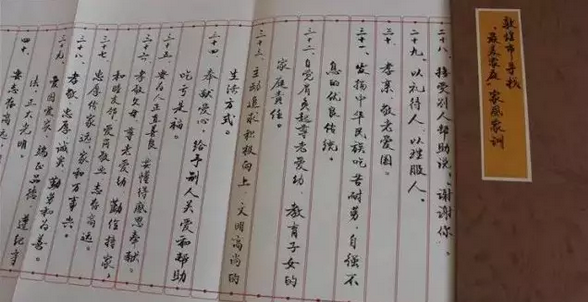 敦煌市寻找
“最美家庭”家风家训
二十八、接受别人帮助说:谢谢你。
二十九、以礼待人,以理服人。
三十、孝亲敬老爱国。
三十一、发扬中华民族吃苦耐劳,自强不
息的优良传统。
三十二、自觉肩负起尊老爱幼、教育子女的
家庭责任。
三十三、主动追求积极向上、文明高尚的
生活方式。
三十四、奉献爱心,给予别人关爱和帮助
吃亏是福。
三十五、为人正直善良,要懂得感恩奉献。
三十六、孝敬父母,尊老爱幼,勤俭持家,
和睦友邻,爱岗敬业,志存高远。
三十七、忠厚传家远,家和万事兴。
三十八、孝敬,忠厚,诚实,勤劳和为善。
三十九、爱国爱家,端正品德,遵纪守
法,正大光明。
四十、要志存高远,